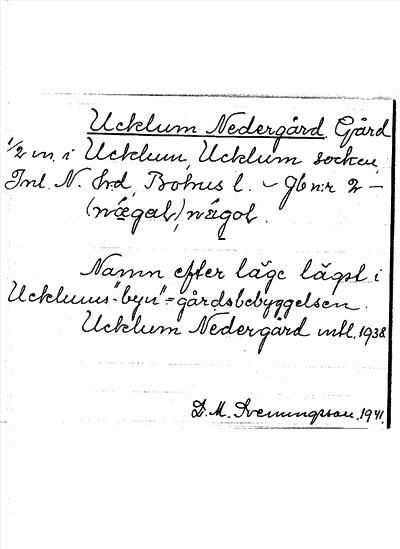 Ucklum Nedergård. Gård
1/2 m. i Ucklum, Ucklum socken,
Inl. N. hrd, Bohus l. – Gbn:r 2 –
(næ̀gaḷ), nä̀goḷ.
Namn efter läge lägst i
Ucklums "byn" = gårdsbebyggelsen.
Ucklum Nedergård mtl. 1938.
D. M. Svenningsson. 1941.